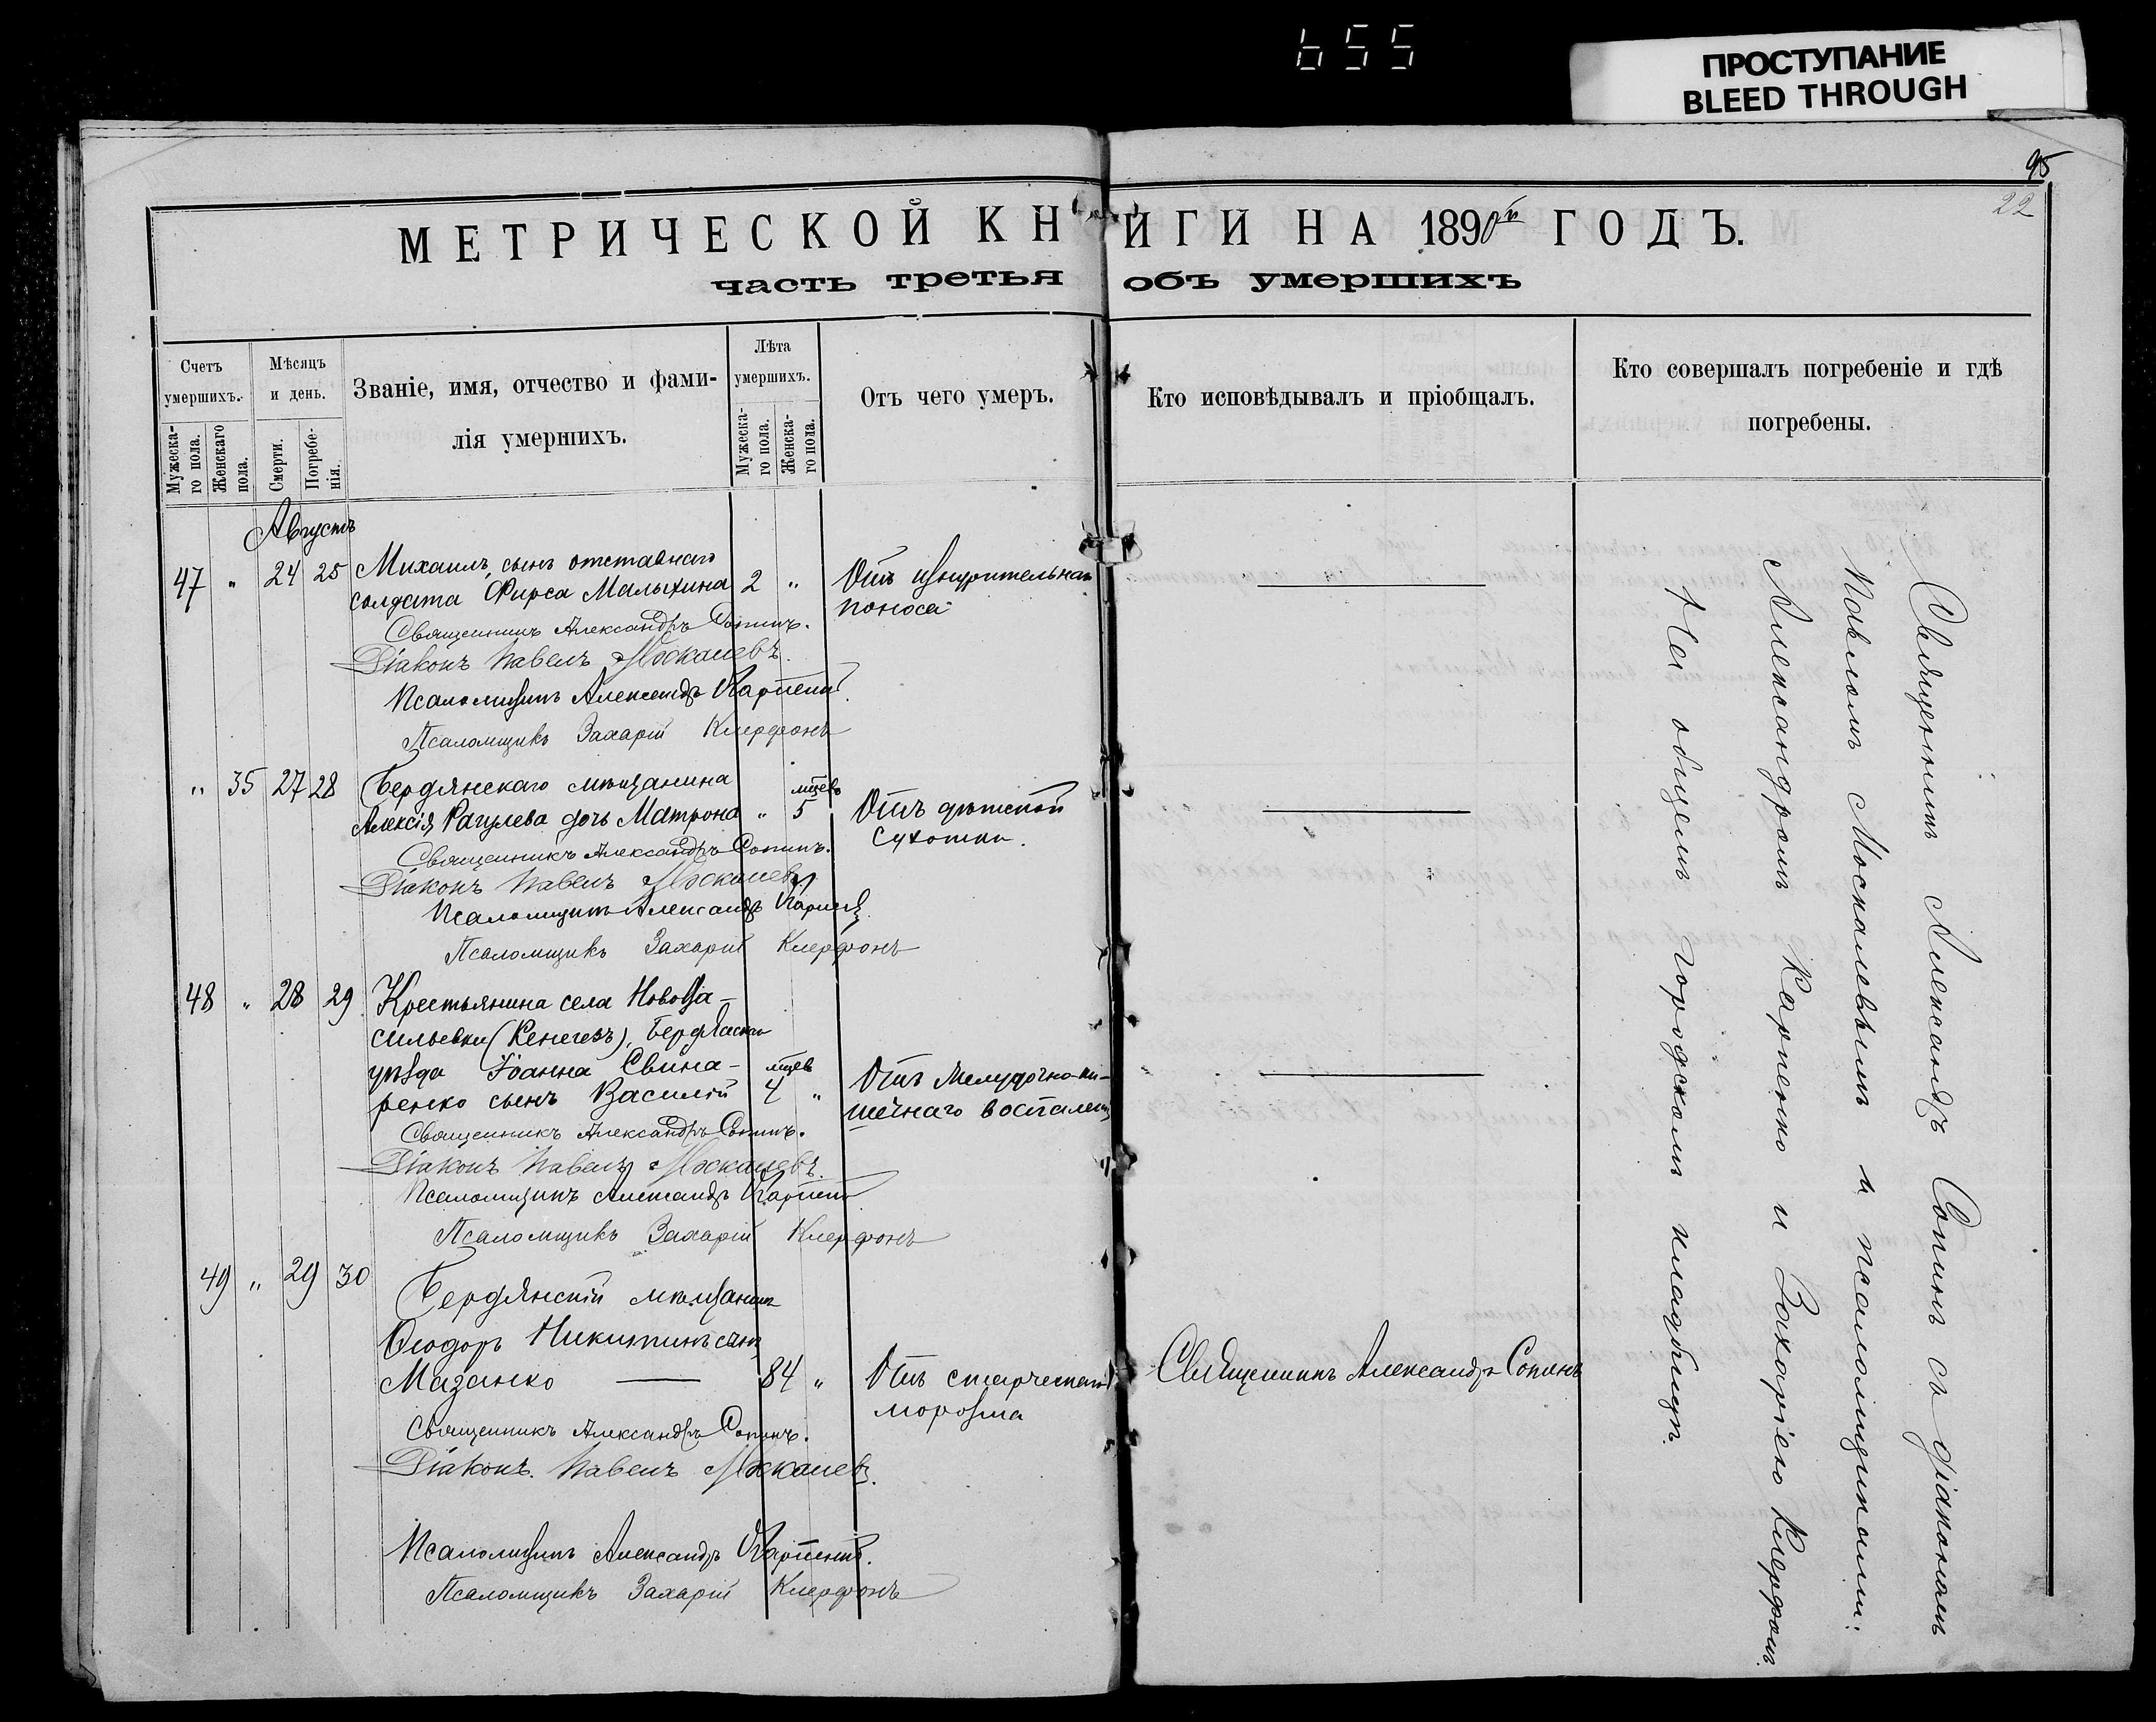 655
ПРОСТУПАНИЕ
BLEED THROUGH
95
22
МЕТРИЧЕСКОЙ КНИГИ НА 1890й ГОДЪ.
часть третья объ умершихъ
Счетъ умершихъ.
Мужеска-
го пола.
Женскаго
пола.
Мѣсяцъ
и день.
Смерти.
Погребе-
нія.
Званіе, имя, отчество и фами-
лія умершихъ.
Лѣта
умершихъ.
Мужеска-
го пола.
Женска-
го пола.
Отъ чего умеръ.
Кто исповѣдывалъ и пріобщалъ.
Кто совершалъ погребеніе и гдѣ
погребены.
Августъ
47 " 24 25 Михаилъ, сынъ отставнаго
солдата Фирса Малыхина 2 " Отъ изнурительнаго
поноса
Священникъ Александръ Сопинъ.
Діаконъ Павелъ Москалевъ.
Псаломщикъ Александръ Карпенко.
Псаломщикъ Захарій Клерфонъ
" 35 27 28 Бердянскаго мѣщанина мцевъ
Алексія Рагулева дочь Матрона " 5 Отъ дѣтской
сухотки.
Священникъ Александръ Сопинъ.
Діаконъ Павелъ Москалевъ
Псаломщикъ Александръ Карпенко
Псаломщикъ Захарій Клерфонъ
48 " 28 29 Крестьянина села НовоВа-
сильевки (Кенегезъ), Бердянскаго
уѣзда Іоанна Свина- мцев
ренко сынъ Василій 4 " Отъ желудочно-ки-
шечнаго воспаленія
Священникъ Александръ Сопинъ.
Діаконъ Павелъ Москалевъ.
Псаломщикъ Александръ Карпенко
Псаломщикъ Захарій Клерфонъ
49 " 29 30 Бердянскій мѣщанинъ
Ѳеодоръ Никитинъ сынъ
Мазанко 84 " Отъ старческаго
морозма
Священникъ Александръ Сопинъ
Священникъ Александръ Сопинъ.
Діаконъ. Павелъ Москалевъ.
Псаломщикъ Александръ Карпенко.
Псаломщикъ Захарій Клерфонъ
Священникъ Александръ Сопинъ съ діакономъ
Павломъ Москалевымъ и псаломщиками:
Александромъ Карпенко и Захаріею Клерфонъ.
На общемъ городскомъ кладбищѣ.